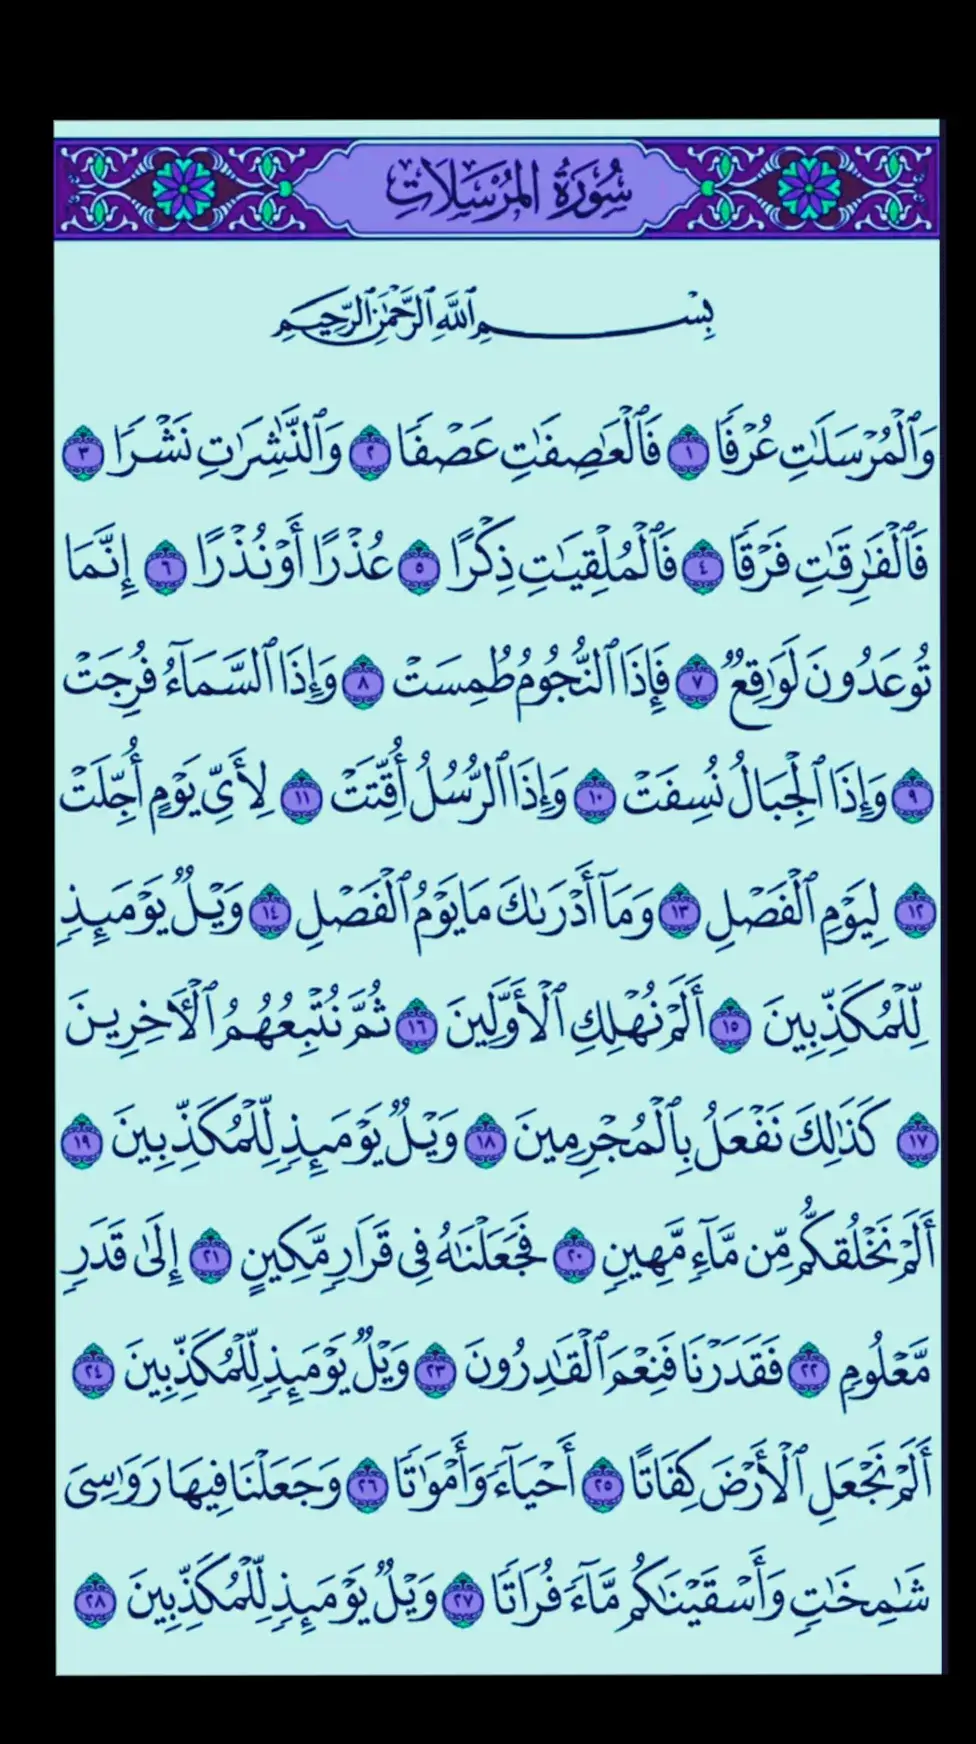 سُورَةُ الْمُرْسَلَاتِ
بِسْمِ ٱللَّهِ ٱلرَّحْمَٰنِ ٱلرَّحِيمِ
وَٱلْمُرْسَلَٰتِ عُرْفًا ١ فَٱلْعَٰصِفَٰتِ عَصْفًا ٢ وَٱلنَّٰشِرَٰتِ نَشْرًا ٣
فَٱلْفَٰرِقَٰتِ فَرْقًا ٤ فَٱلْمُلْقِيَٰتِ ذِكْرًا ٥ عُذْرًا أَوْ نُذْرًا ٦ إِنَّمَا
تُوعَدُونَ لَوَٰقِعٌ ٧ فَإِذَا ٱلنُّجُومُ طُمِسَتْ ٨ وَإِذَا ٱلسَّمَآءُ فُرِجَتْ
٩ وَإِذَا ٱلْجِبَالُ نُسِفَتْ ١٠ وَإِذَا ٱلرُّسُلُ أُقِّتَتْ ١١ لِأَىِّ يَوْمٍ أُجِّلَتْ
١٢ لِيَوْمِ ٱلْفَصْلِ ١٣ وَمَآ أَدْرَىٰكَ مَا يَوْمُ ٱلْفَصْلِ ١٤ وَيْلٌ يَوْمَئِذٍ
لِّلْمُكَذِّبِينَ ١٥ أَلَمْ نُهْلِكِ ٱلْأَوَّلِينَ ١٦ ثُمَّ نُتْبِعُهُمُ ٱلْـَٔاخِرِينَ
١٧ كَذَٰلِكَ نَفْعَلُ بِٱلْمُجْرِمِينَ ١٨ وَيْلٌ يَوْمَئِذٍ لِّلْمُكَذِّبِينَ ١٩
أَلَمْ نَخْلُقكُّم مِّن مَّآءٍ مَّهِينٍ ٢٠ فَجَعَلْنَٰهُ فِى قَرَارٍ مَّكِينٍ ٢١ إِلَىٰ قَدَرٍ
مَّعْلُومٍ ٢٢ فَقَدَرْنَا فَنِعْمَ ٱلْقَٰدِرُونَ ٢٣ وَيْلٌ يَوْمَئِذٍ لِّلْمُكَذِّبِينَ ٢٤
أَلَمْ نَجْعَلِ ٱلْأَرْضَ كِفَاتًا ٢٥ أَحْيَآءً وَأَمْوَٰتًا ٢٦ وَجَعَلْنَا فِيهَا رَوَٰسِىَ
شَٰمِخَٰتٍ وَأَسْقَيْنَٰكُم مَّآءً فُرَاتًا ٢٧ وَيْلٌ يَوْمَئِذٍ لِّلْمُكَذِّبِينَ ٢٨